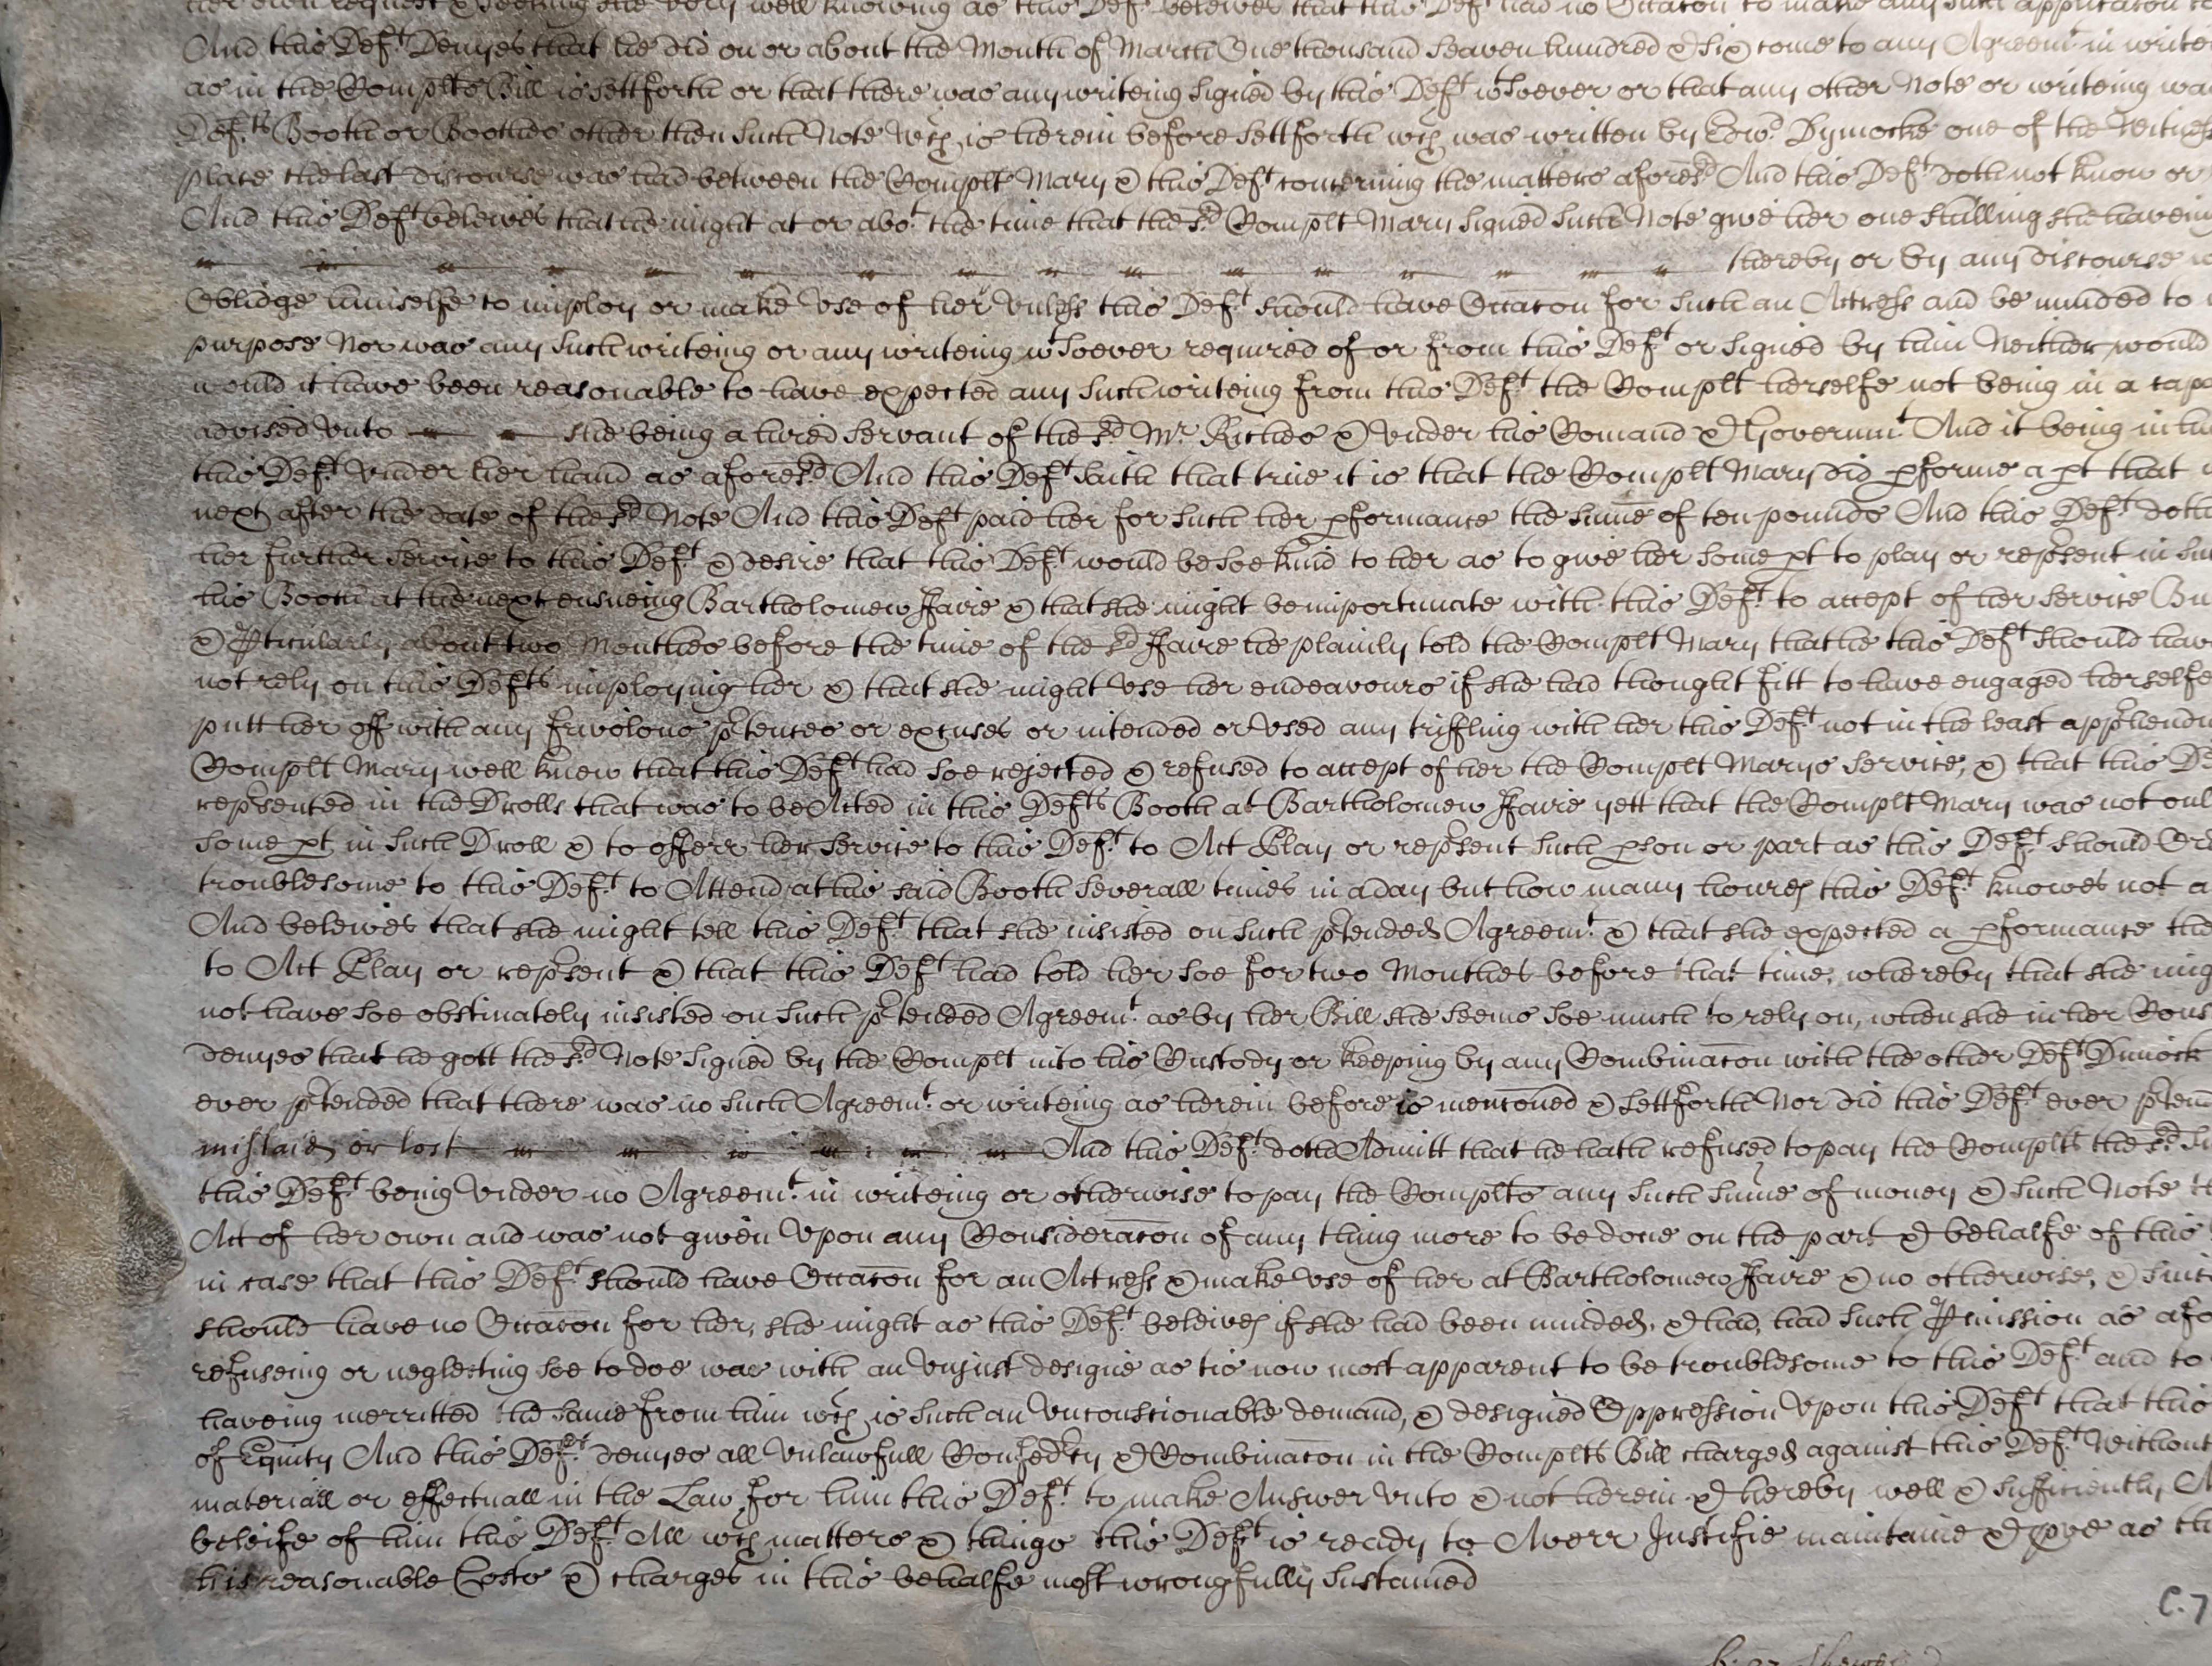 her own request & seeking she very well knowing as this Def.t beleives that this Def.t had no Occac̄on to make any such applicac̄on to
And this Def.t Denyes that he did on or about the Month of March One thousand seaven hundred & six come to any Agreem.t in write
as in the Complts Bill is settforth or that there was any writeing signed by this Def.t wtsoever or that any other Note or writeing was
Def.ts Booth or Boothes other then such Note wch is herein before settforth wch was written by Edwd Dymocke one of the Witness
place the last discourse was had between the Complt Mary & this Def.t concerning the matters aforesd And this Def.t doth not know or
And this Def.t beleives that he might at or abot the time that the sd Complt Mary signed such Note give her one shilling she haveing
thereby or by any discourse
Oblidge himselfe to imploy or make use of her unless this Def.t should have Occac̄on for such an Actress and be minded to
purpose Nor was any such writeing or any writeing wtsoever required of or from this Def.t or signed by him Neither would
would it have been reasonable to have expected any such writeing from this Def.t the Complt herselfe not being in a capa
advised unto she being a hired servant of the sd Mr. Riches & under his Comand & Governmt And it being in
this Def.t under her hand as aforesd And this Def.t saith that true it is that the Complt Mary did pforme a pt that
next after the date of the sd Note And this Def.t paid her for such her pformance the sume of ten pounds And this Def.t doth
her further service to this Def.t & desire that this Def.t would be soe kind to her as to give her some pt to play or repsent in su
his Booth at the next ensueing Bartholomew ffaire & that she might be importunate with this Def.t to accept of her service Bu
& pticularly about two Monthes before the time of the sd ffaire he plainly told the Complt Mary that he this Def.t should hav
not rely on this Def.ts imploying her & that she might use her endeavours if she had thought fitt to have engaged herselfe
putt her off with any frivolous ptences or excuses or intended or used any triffling with her this Def.t not in the least apprhendin
Complt Mary well knew that this Def.t had soe rejected & refused to accept of her the Complt Marys service, & that this De
repsented in the Drolls that was to be Acted in this Def.ts Booth at Bartholomew ffaire yett that the Complt Mary was not onl
some pt in such Droll & to offerr her service to this Def.t to Act Play or repsent such pson or part as this Def.t should
troublesome to this Def.t to Attend at his said Booth severall times in a day but how many houres this Def.t knowes not a
And beleives that she might tell this Def.t that she insisted on such ptended Agreem.t & that she expected a pformance the
to Act Play or repsent & that this Def.t had told her soe for two Monthes before that time, whereby that she mig
not have soe obstinately insisted on such ptended Agreem.t as by her Bill she seems soe much to rely on, when she in her Cons
denyes that he gott the sd Note signed by the Complt into his Custody or keeping by any Combinac̄on with the other Def.t Dimock
ever ptended that there was no such Agreem.t or writeing as herein before is menc̄oned & settforth Nor did this Def.t ever pten
mislaid or lost And this Def.t doth Admitt that he hath refused to pay the Complts the sd Su
this Def.t being under no Agreem.t in writeing or otherwise to pay the Complts any such sume of money & such Note
Act of her own and was not given upon any Considerac̄on of any thing more to be done on the part & behalfe of this
in case that this Def.t should have Occac̄on for an Actress & make use of her at Bartholomew ffaire & no otherwise, & since
should have no Occac̄on for her, she might as this Def.t beleives if she had been minded, & had, had such Pmission as afo
refuseing or neglecting soe to doe was with an unjust designe as tis now most apparent to be troublesome to this Def.t and to
haveing merritted the same from him wch is such an unconscionable demand, & designed Oppression upon this Def.t that this
of Equity And this Def.t denyes all unlawfull Confedcy & Combinac̄on in the Complts Bill charged against this Def.t Without
materiall or effectuall in the Law for him this Def.t to make Answer unto & not herein & hereby well & sufficiently
beleife of him this Def.t All wch matters & things this Def.t is ready to Averr Justifie maintaine & pve as
his reasonable Costs & charges in this behalfe most wrongfully sustained
C.7